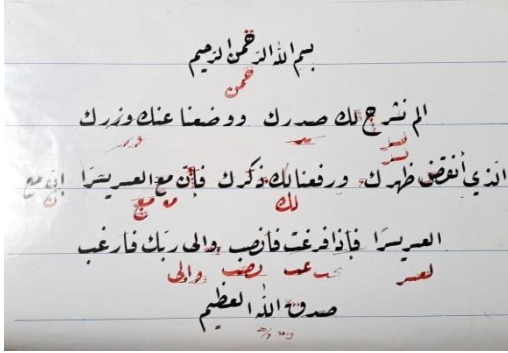 بسم الله الرحمن الرحيم
الم نشرح لك صدرك ووضعنا عنك وزرك
الذي أنقض ظهرك ورفعنا لك ذكرك فإن مع العسر يسرا إن مع
العسر يسرا فإذا فرغت فانصب وإلى ربك فارغب
صدق الله العظيم